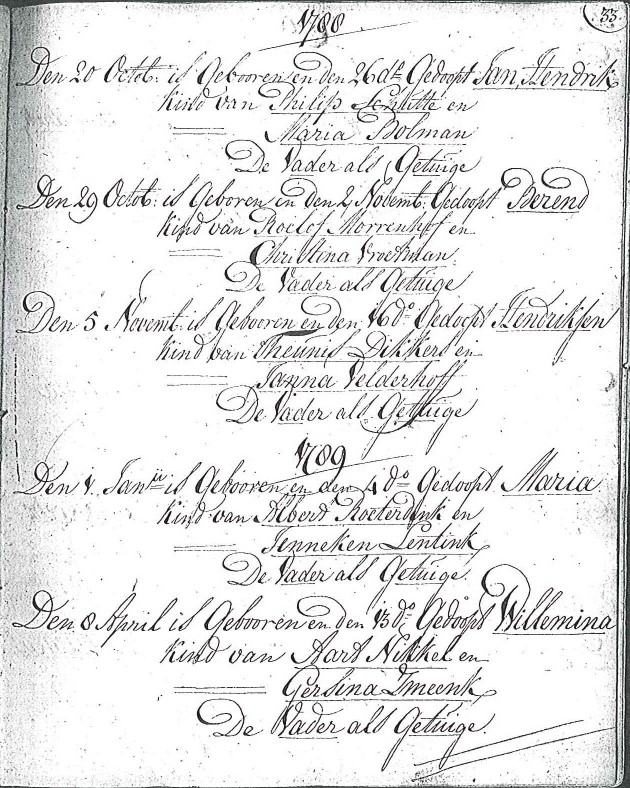 33
1788
Den 20 Octob: is Gebooren en den 26 d° Gedoopt Jan Hendrik
Kind van Philip Schutte en
Maria Bolman
De Vader als Getuige
Den 29 Octob: is Geboren en den 2 Novemb: Gedoopt Berend
Kind van Roelof Morrenhof en
Christina Vroetman
De Vader als Getuige
Den 5 Novemb: is Gebooren en den 16 d° Gedoopt Hendriksen
Kind van Theunis Dikkers en
Janna Velderhoff
De Vader als Getuige
1789
Den 1. Janii is Gebooren en den 4 d° Gedoopt Maria
Kind van Albert Roeterdink en
Jenneken Lentink
De Vader als Getuige.
Den 8 April is Gebooren en den 13 d° Gedoopt Willemina
Kind van Aart Nikkel en
Gersina Imeenk
De Vader als Getuige.